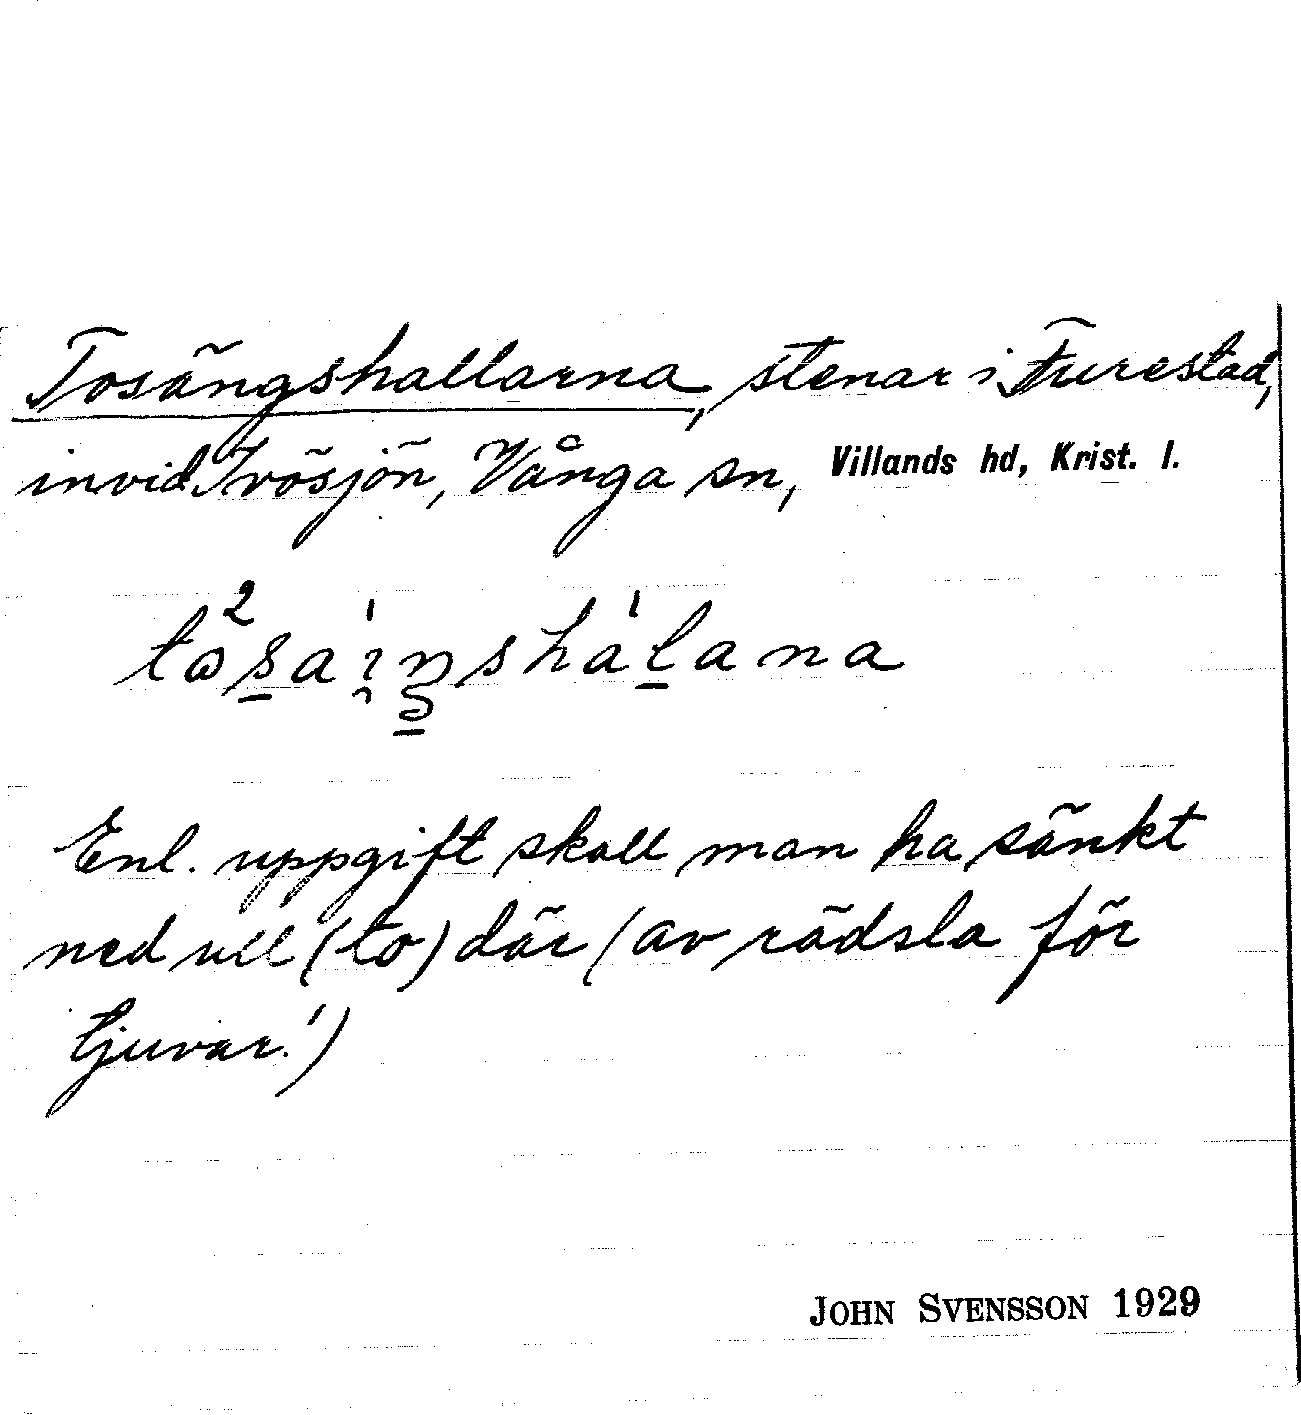 Tosängshallarna, stenar i Furestad,
invid Ivösjön, Vånga sn, Villands hd, Krist. l.
Enl. uppgift skall man ha sänkt
ned ull (to) där (av rädsla för
tjuvar!)
JOHN SVENSSON 1929